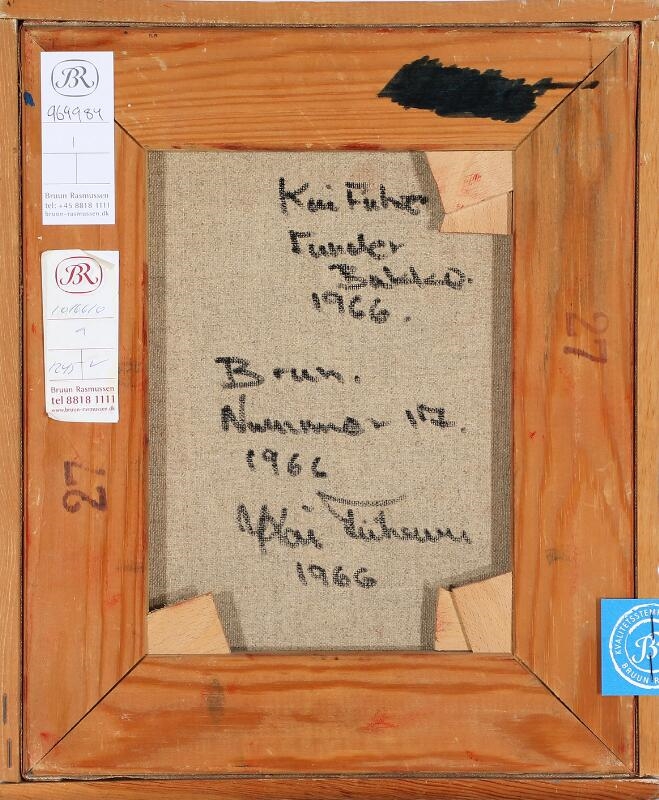 BR
969984
1
Bruun Rasmussen
tel: +45 8818 1111
bruun-rasmussen.dk
BR
9
Bruun Rasmussen
tel 8818 1111
www.bruun-rasmussen.dk
27
27
Kai Führer
Funder
Bakke.
1966.
Brun.
Nummer
1966
Af Kai Führer
1966
KVALITETSSTEM
BR
BRUUN R